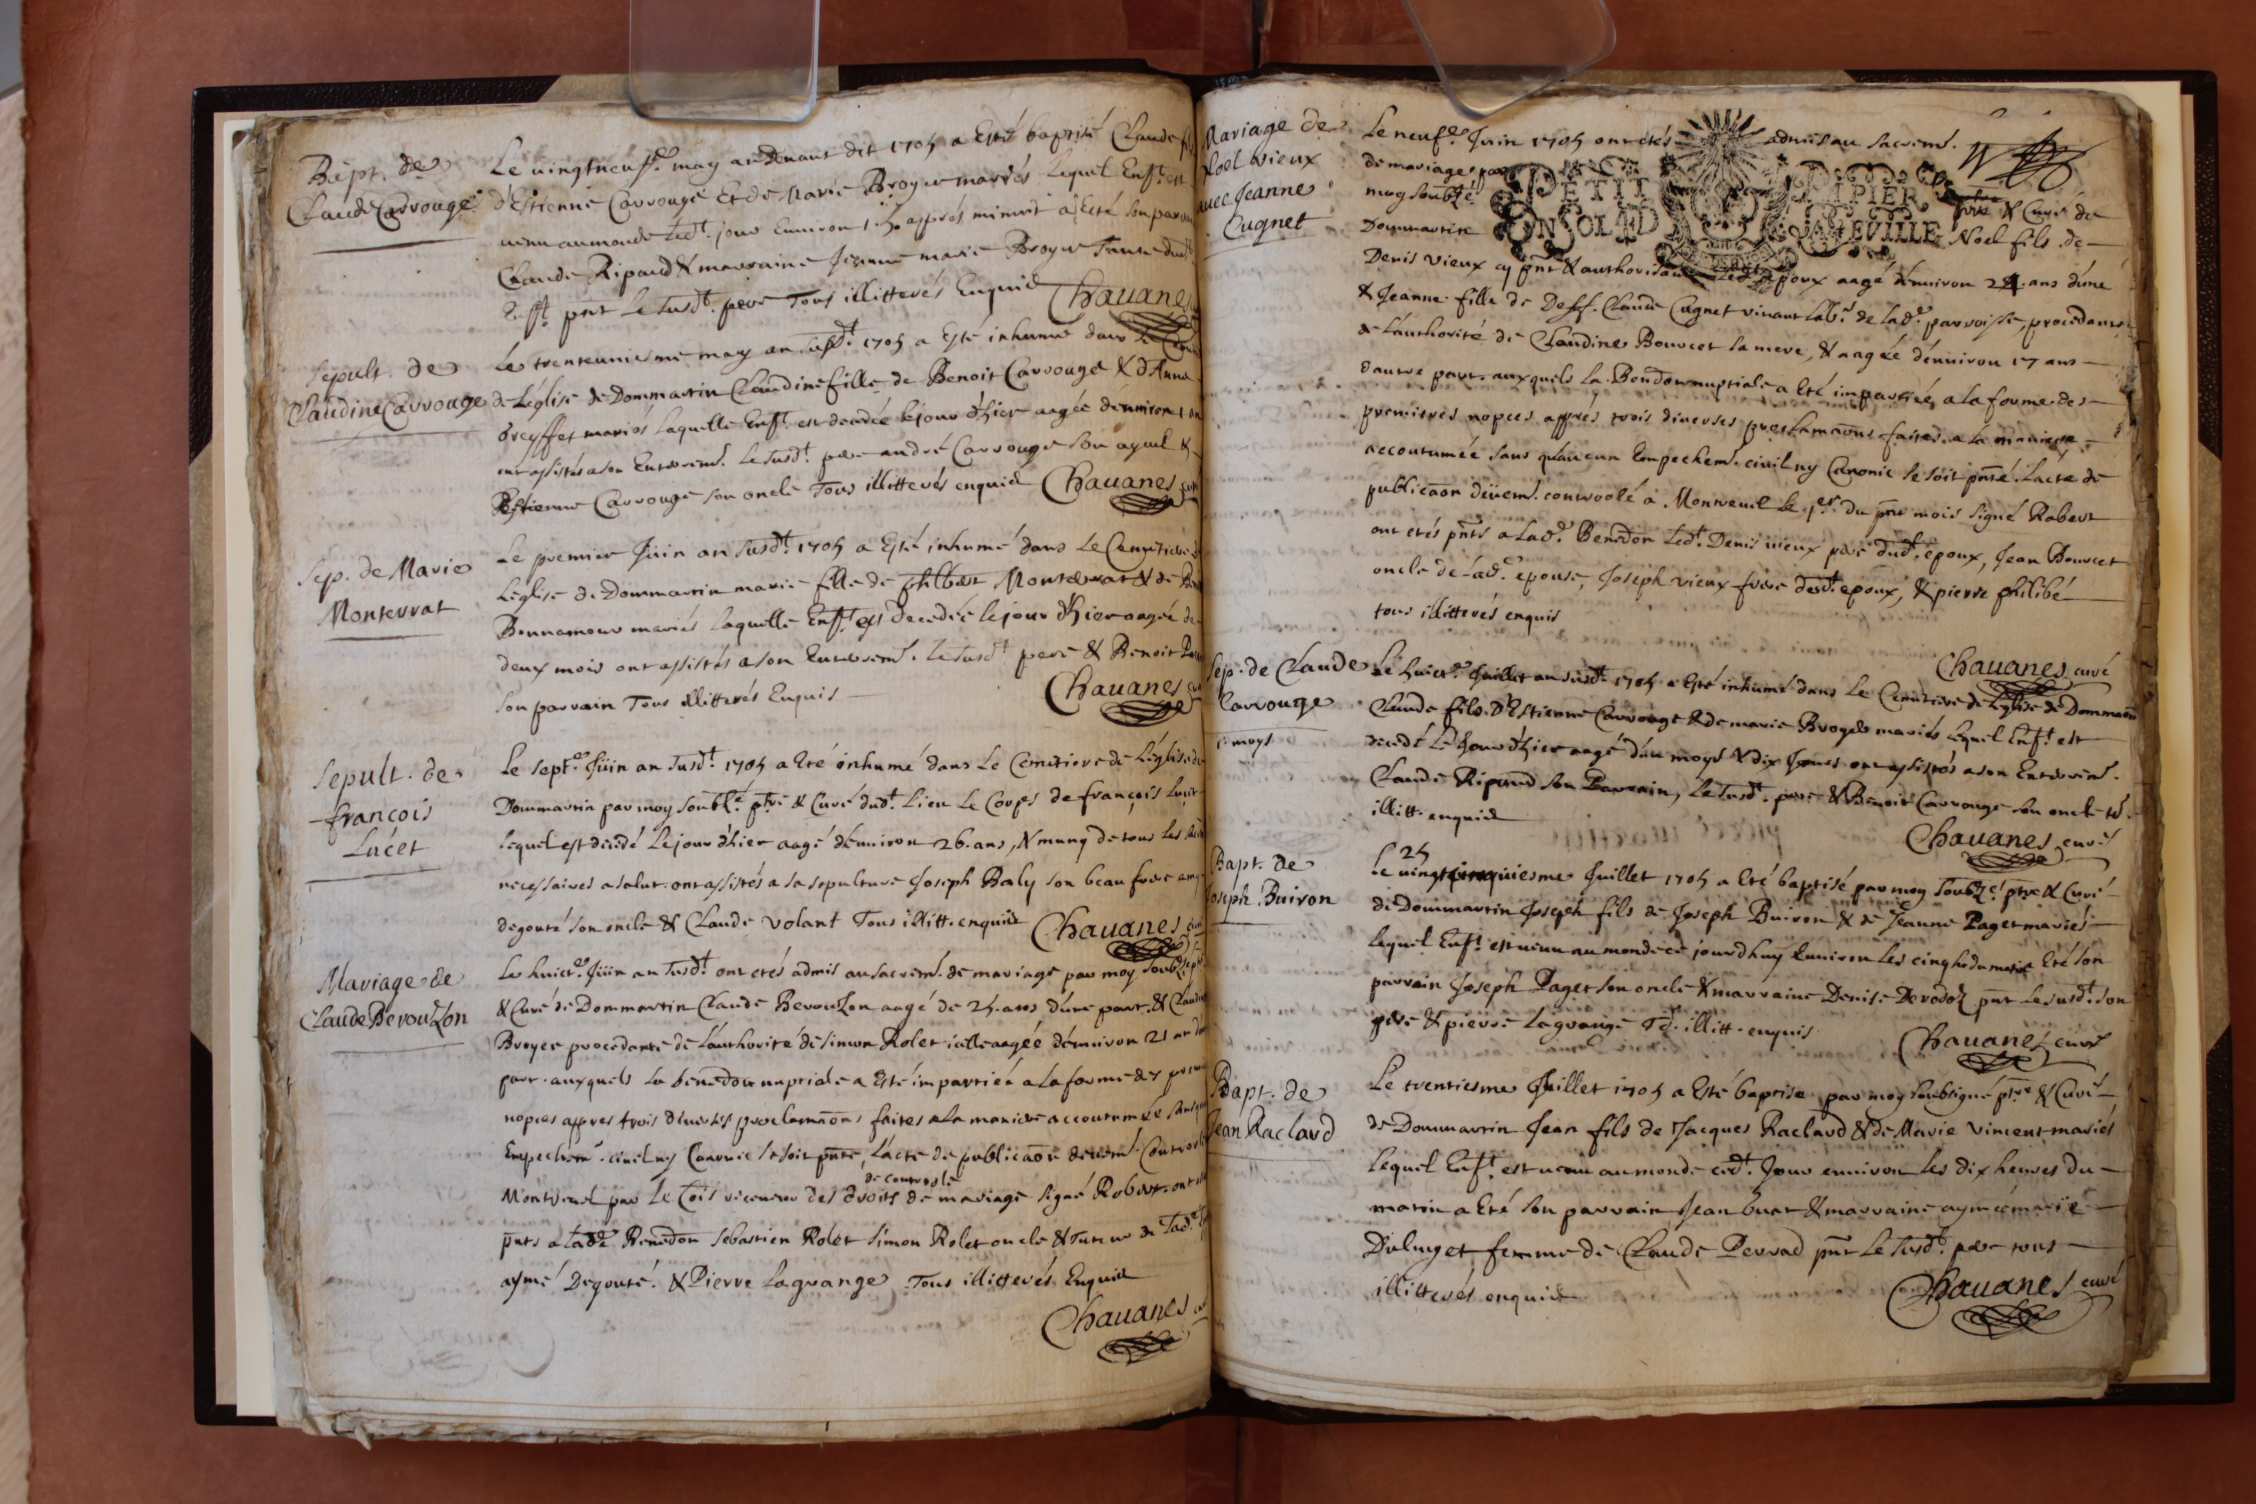 Bapt. de
Claude Carrouge
Le vingtneufe. may an devant dit 1705 a Esté baptisé Claude
d'Estienne Carrouge Et de Marie Broyer mariés Lequel Enft. est
venu au monde Ledt. jour Environ 1 h. apprés minuit a Esté son parrain
Claude Ripaud & marraine Jeanne marie Broyer Tante dudt.
Enft. pnt Le susdt. pere Tous illitterés Enquis Chauanes
Sepult. de
Claudine Carrouge
Le trenteuniesme may an susdt. 1705 a Esté inhumé dans le
de L'église de Dommartin Claudine fille de Benoit Carrouge & d'Anne
Greyffet mariés laquelle Enft. est decedée le jour d'hier aagée d'environ 1 an
ont assistés a son Enterremt. Le susdt. pere andré Carrouge son ayeul &
Estienne Carrouge son oncle Tous illitterés enquis Chauanes curé
Sep. de Marie
Monterrat
Le premier Juin an susdt. 1705 a Esté inhumé dans Le Cemetiere de
L'église de Dommartin marie fille de philbert Monterrat & de
Bonnamour mariés laquelle Enft. est decedée le jour d'hier aagée de
deux mois ont assistés a son Enterremt. Le susdt. pere & Benoit
son parrain Tous illitterés Enquis
Chauanes curé
Sepult. de
françois
Lucet
Le septe. Juin an susdt. 1705 a Eté inhumé dans Le Cemetiere de L'église de
Dommartin par moy soubzé. ptre & Curé dudt. Lieu Le Corps de françois Lucet
lequel est decedé Le jour d'hier aagé d'environ 26. ans, & muny de tous les
necessaires a salut. ont assistés a sa sepulture Joseph Baly son beau frere aymé
degouté son oncle & Claude volant Tous illitt. enquis Chauanes curé
Mariage de
Claude Berouzon
Le huicte. Juin an susdt. ont etés admis au sacremt. de mariage par moy
& Curé de Dommartin Claude Berouzon aagé de 25. ans d'une part. &
Broyer procedante de L'authorité de simon Rolet icelle aagée d'environ 21 an
part. auxquels la benedon nuptiale a Esté impartiée a la forme des
nopces appres trois diverses proclamaons faites a la maniere accoutumée
Empechemt. civil ny Canonic se soit pnté, L'acte de publicaon
de controole
Montreuel par Le Cois receveur des droits de mariage signé Robert. ont
pnts a ladte Benedon sebastien Rolet simon Rolet oncle & Tuteur de Lade.
aymé Degouté. & Pierre Lagrange Tous illitterés Enquis
Chauanes
Mariage de
Noel vieux
avec Jeanne
Cugnet
Le neufe. Juin 1705 ont etés admis au sacremt.
de mariage par
PETIT PAPIER
moy soubzé. ptre & Curé de
CONSOLID JANEVILLE
Dommartin Noel fils de
Denis vieux cy pnt & authorisant Ledt. Epoux aagé d'environ 24. ans d'une
& Jeanne fille de Deff. Claude Cugnet vivant Labr. de Lade. parroisse, procedante
de L'authorité de Claudine Bouvcet sa mere, & aagée d'environ 17 ans
d'autre part. auxquels La Benedon nuptiale a Eté impartiée, a la forme des
premieres nopces appres trois diverses proclamaons faites a la maniere
accoutumée sans qu'aucun Empechemt. civil ny Canonic se soit pnté. L'acte de
publicaon düemt. controolé a Montreuil le 1er. du pnt mois signé Robert
ont etés pnts a Lade. Benedon Ledt. Denis vieux pere dudt. epoux, Jean Bouvcet
oncle de Lade. epouse, Joseph vieux frere dudt. epoux, & pierre philibé
tous illitterés enquis
Chauanes curé
Sep. de Claude
Carrouge
1 moys
Le huicte. Juillet an susdt. 1705 a Esté inhumé dans Le Cemetiere de L'église de Dommartin
Claude fils d'Estienne Carrouge & de marie Broyer mariés Lequel Enft. est
decedé Le Jour d'hier aagé d'un moys & dix Jours ont assistés a son Enterremt.
Claude Ripaud son Parrain, Le susdt. pere & Benoit Carrouge son oncle
illitt. enquis
Chauanes curé
Bapt. de
Joseph Buiron
25
Le vingtcinquiesme Juillet 1705 a Eté baptisé par moy soubzé. ptre & Curé
de Dommartin Joseph fils de Joseph Buiron & de Jeanne Paget mariés
lequel Enft. est venu au monde ce jourd'huy Environ les cinq h. du matin a Eté son
parrain Joseph Paget son oncle & marraine Denise Derodoz pnt Le susdt. son
pere & pierre Lagrange Td. illitt. enquis
Chauanes curé
Bapt. de
Jean Raclard
Le trentiesme Juillet 1705 a Esté baptisé par moy soubsigné ptre & Curé
de Dommartin Jean fils de Jacques Raclard & de Marie Vincent mariés
Lequel Enft. est venu au monde cedt. Jour environ les dix heures du
matin a Eté son parrain Jean buat & marraine aymée marie
Duluget femme de Claude Perrad pnt Le susdt. pere tous
illitterés enquis
Chauanes curé